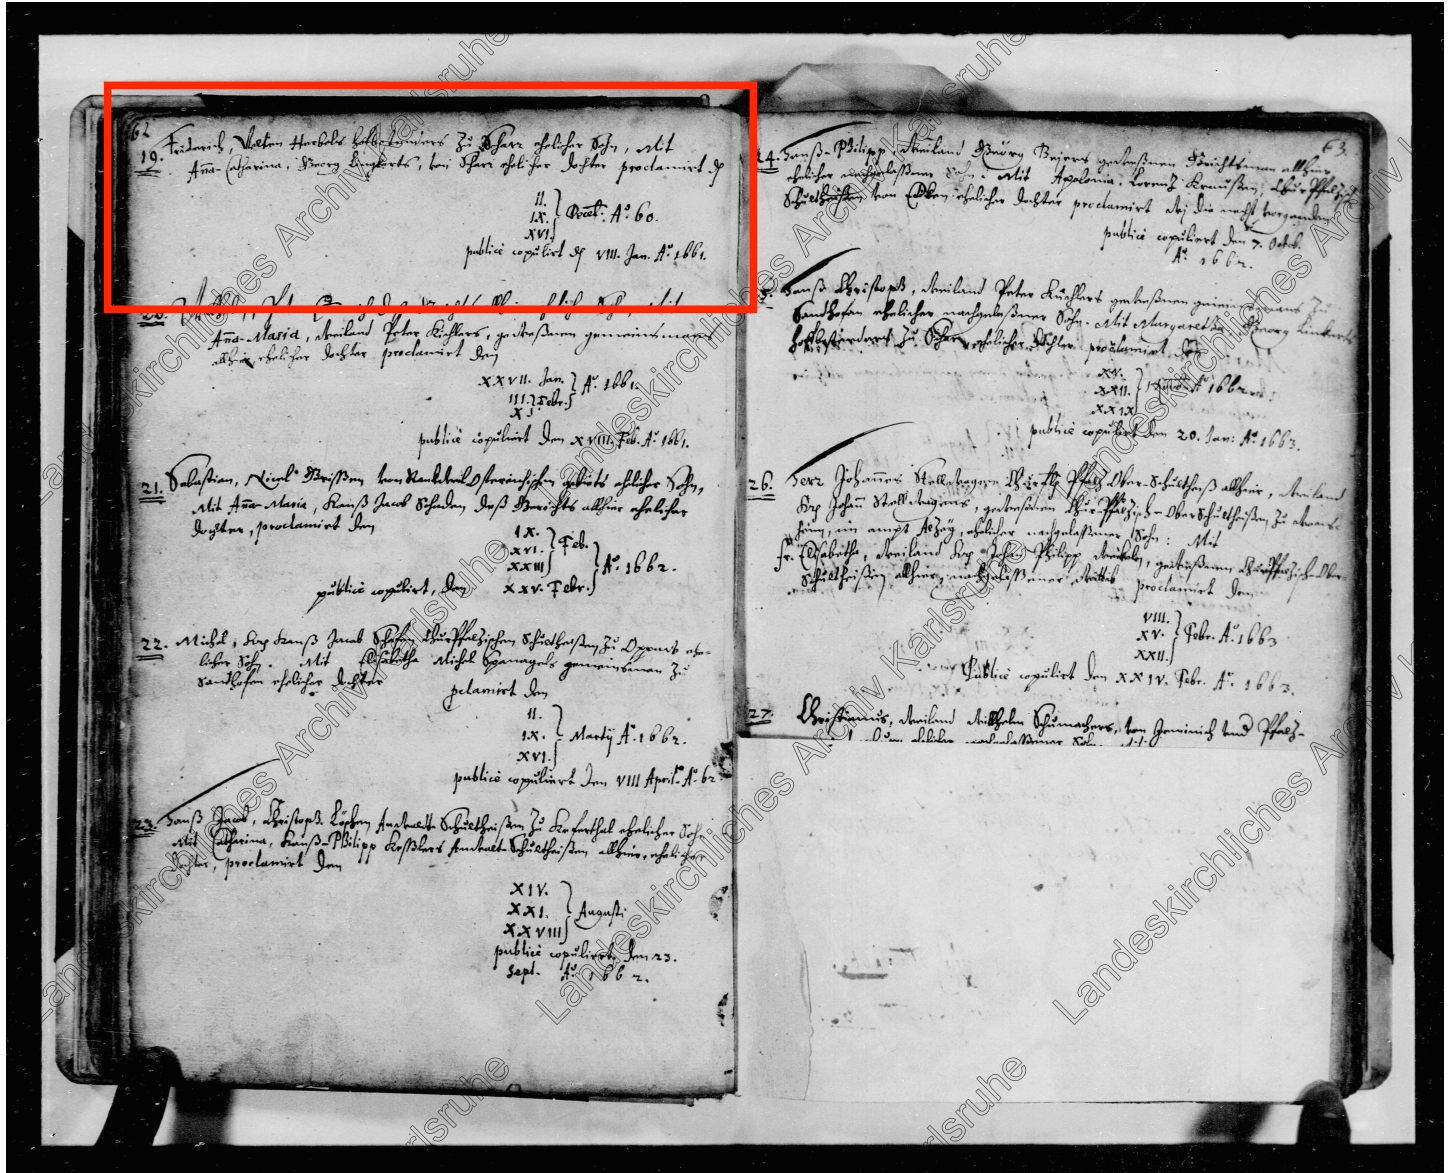 62
19. Friderich, Velten Herbels hofbestenders zu Scharr ehelicher Sohn, Mit
Anna-Catharina, Georg Linckerts, von Scharr ehelicher dochter proclamirt
II.
IX. Decemb. Aō. 60.
XVI.
publicè copulirt VIII. Jan. Aō. 1661.
20.
Anna-Maria, Weiland Peter Kichlers, gewesenen gemeinsmans
allhier ehelicher dochter proclamirt den
XXVII. Jan. Aō. 1661.
III. Febr.
X.
publicè copuliert den XVIII. Feb. Aō. 1661.
21. Sebastian, Nicol Österreichischen gebiets ehlicher Sohn,
Mit Anna-Maria, Hanß Jacob Schaden deß Gerichts allhier ehelicher
dochter, proclamirt den
IX.
XVI. Feb.
XXIII Aō. 1662.
publicè copulirt, den XXV. Febr.
22. Michel, Hanß Jacob ChurPfalzischen Schultheißen zu Oppaw ehe-
licher Sohn. Mit Elisabetha Michel Spanagels gemeinsman zu
Sandhofen ehelicher dochter
pclamirt den
II.
IX. Martij Aō. 1662.
XVI.
publicè copuliert den VIII April. Aō. 62.
23. Hanß Jacob, Christoph Schultheißen zu Keferthal ehelicher Sohn
Mit Catharina, Hanß-Philipp Keßlers Anwalt-Schultheißen allhier, ehelicher
dochter, proclamirt den
XIV.
XXI. Augusti
XXVIII
publicè copuliert, den 23.
Sept. Aō. 1662.
63.
24. Hanß-Philipp, Weiland Georg Beyers gewesenen Gerichtsman allhier
ehelicher nachgelaßener Sohn. Mit Apolonia, Lorentz Chur Pfalz.
Schultheißen von ehelicher dochter proclamirt
publicè copuliert den 7. Octob.
Aō. 1662.
Hanß Christoph, Weiland Peter Kuchlers gewesenen gemeinsmans zu
Sandhofen ehelicher nachgelaßener Sohn. Mit Margaretha, Georg Linckerts
hofbestenders zu Scharr ehelicher dochter proclamirt den
XV.
XXII. Aō. 1662
XXIX
publicè copuliert den 20. Jan: Aō. 1663.
26. Herr Johannes Stellwagen Pfalz Ober-Schultheiß allhier, Weiland
H. Johann Stellwagens, gewesenen Chur Pfalzisch-Ober Schultheißen zu
heim, im ampt Alzey, ehelicher nachgelaßener Sohn: Mit
fr. Elisabetha, Weiland H. Johann Philipp gewesenen ChurPfalzisch Ober-
Schultheißen allhier, nachgelaßener Wittib proclamirt den
VIII.
XV. Febr. Aō. 1663
XXII.
Publicè copulirt den XXIV. Febr. Aō. 1663.
27. Christianus, Weiland Wilhelm Schumachers, von
Landeskirchliches Archiv Karlsruhe